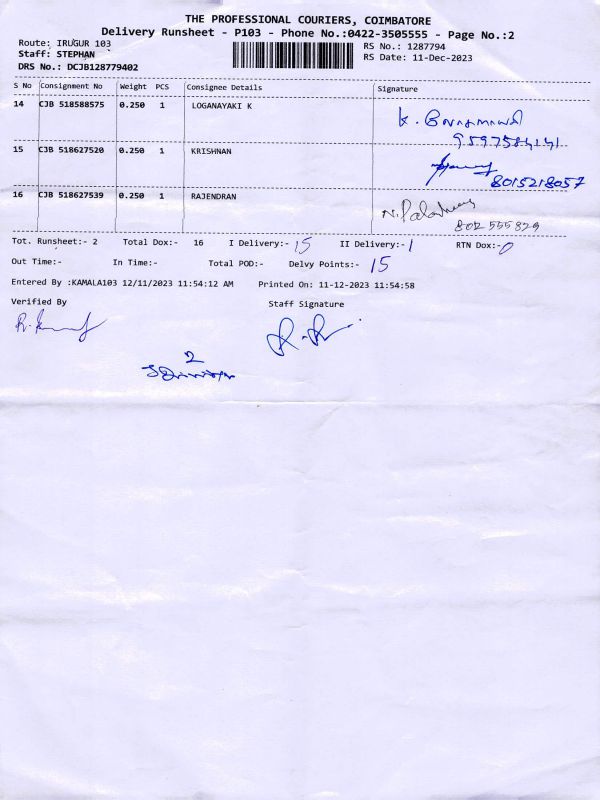 THE PROFESSIONAL COURIERS, COIMBATORE
Delivery Runsheet - P103 - Phone No.:0422-3505555 - Page No.:2
Route: IRUGUR 103
RS No.: 1287794
Staff: STEPHAN
RS Date: 11-Dec-2023
DRS No.: DCJB128779402
S No Consignment No Weight PCS Consignee Details Signature
14 CJB 518588575 0.250 1 LOGANAYAKI K
K.
15 CJB 518627520 0.250 1 KRISHNAN
8015218057
16 CJB 518627539 0.250 1 RAJENDRAN
Tot. Runsheet:- 2 Total Dox:- 16 I Delivery:- 15 II Delivery:- 1 RTN Dox:- 0
Out Time:- In Time:- Total POD:- Delvy Points:- 15
Entered By :KAMALA103 12/11/2023 11:54:12 AM Printed On: 11-12-2023 11:54:58
Verified By Staff Signature
2